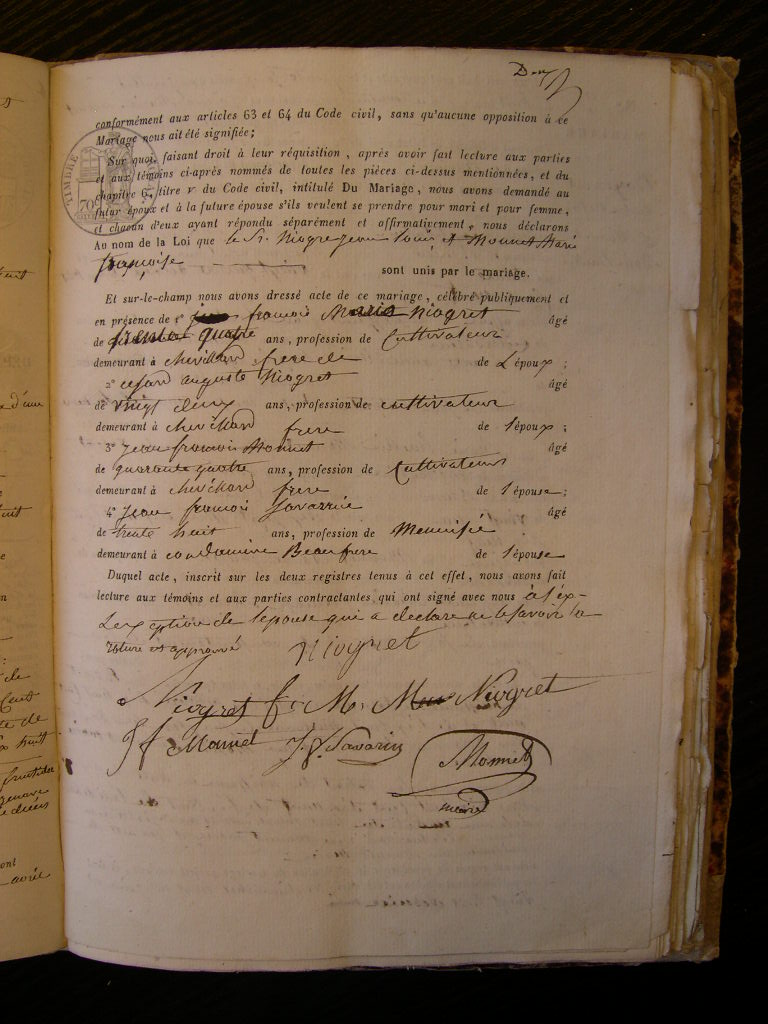 Deux
conformément aux articles 63 et 64 du Code civil, sans qu'aucune opposition à ce
Mariage nous ait été signifiée;
Sur quoi, faisant droit à leur réquisition, après avoir fait lecture aux parties
et aux témoins ci-après nommés de toutes les pièces ci-dessus mentionnées, et du
chapitre 6, titre v du Code civil, intitulé Du Mariage, nous avons demandé au
futur époux et à la future épouse s'ils veulent se prendre pour mari et pour femme,
et chacun d'eux ayant répondu séparément et affirmativement, nous déclarons
Au nom de la Loi que le Sr. Niogret jean Louis et Monnet Marie
françoise
sont unis par le mariage.
Et sur-le-champ nous avons dressé acte de ce mariage, célébré publiquement et
en présence de 1° françois Marie Niogret âgé
de trente quatre ans, profession de Cultivateur
demeurant à chevillard frere de de L'époux;
2° cesard auguste Niogret âgé
de vingt deux ans, profession de cultivateur
demeurant à chevillard frere de l'époux;
3° jean francois Monnet âgé
de quarante quatre ans, profession de Cultivateur
demeurant à chevillard frere de l'épouse;
4° jean francois Savarin âgé
de trente huit ans, profession de Menuisié
demeurant à condamine Beaufrere de l'épouse
Duquel acte, inscrit sur les deux registres tenus à cet effet, nous avons fait
lecture aux témoins et aux parties contractantes qui ont signé avec nous a l'éx-
ception de l'epouse qui a declaré ne le savoir la
rature est approuvé Niogret
Niogret f M Niogret
J f Monnet J. f. Savarin Monnet
maire
TIMBRE
70